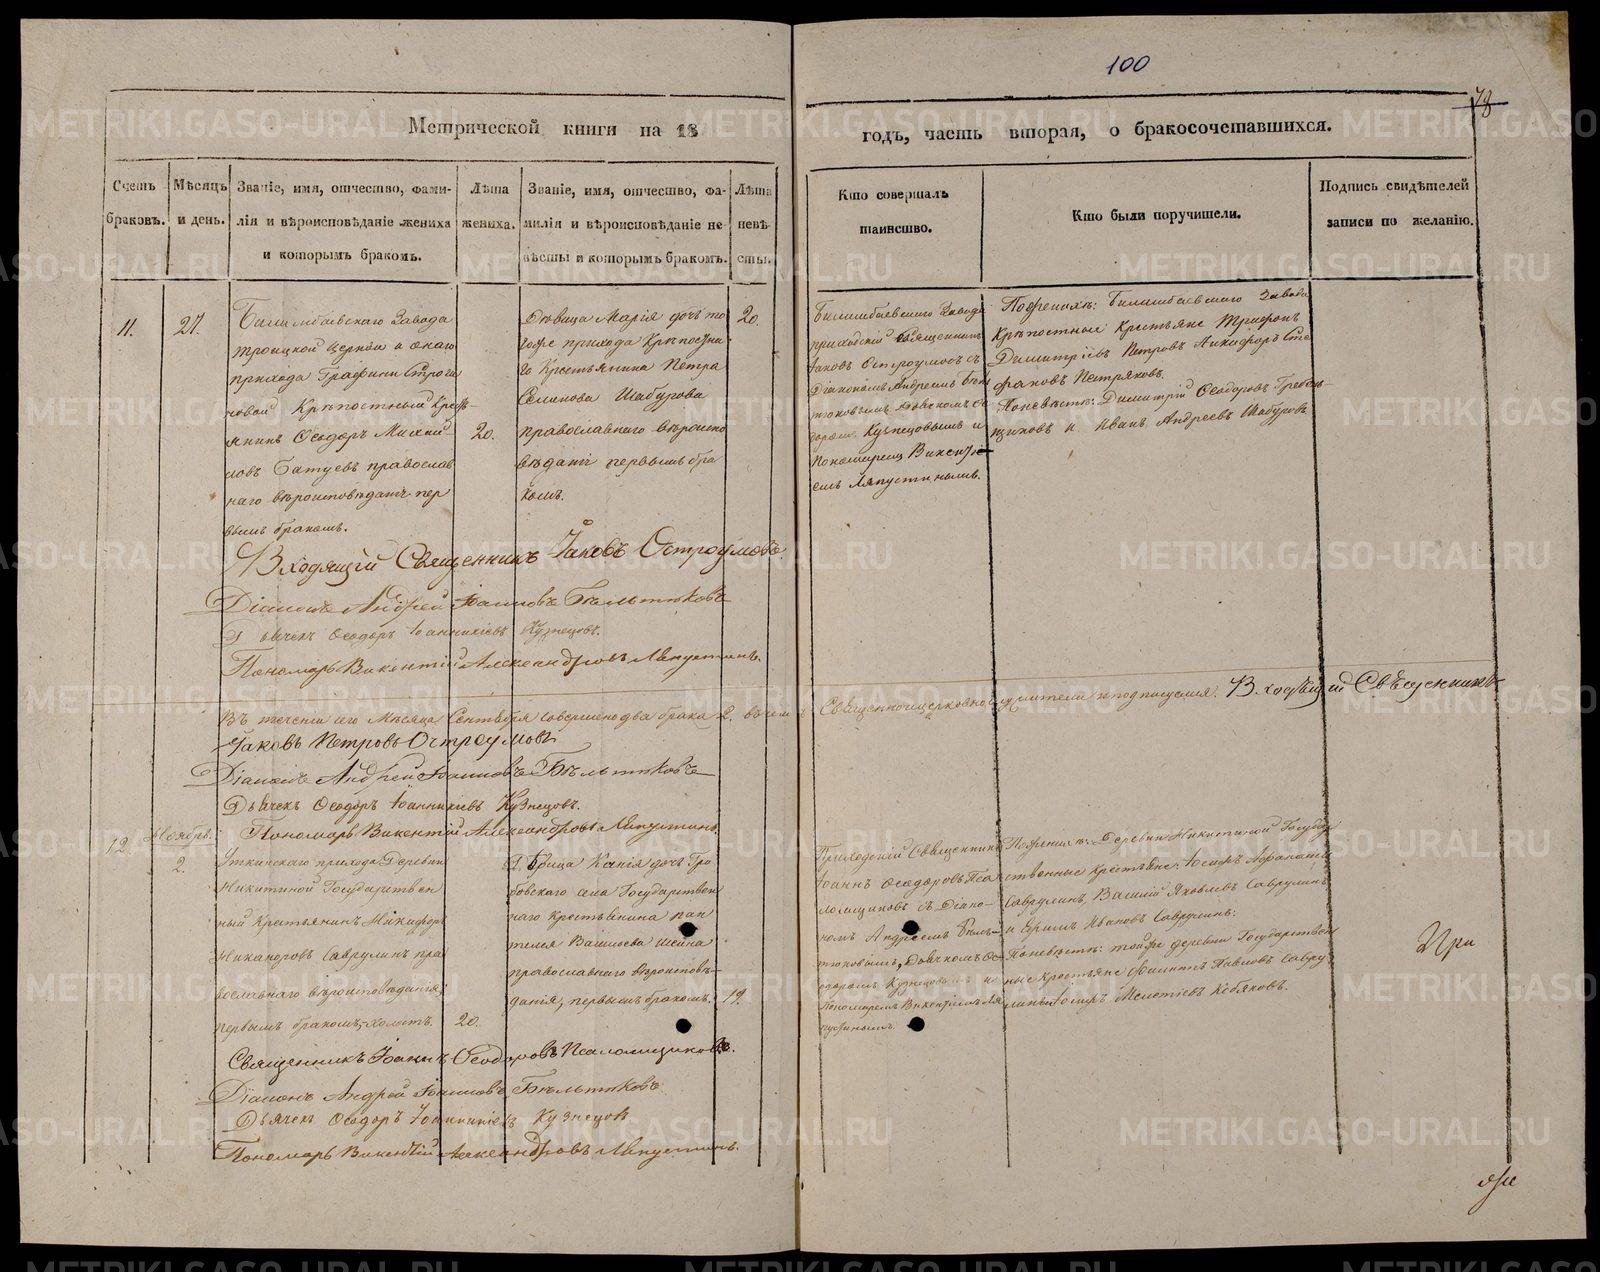 100
78
Метрической книги на 18
годъ, часть вторая, о бракосочетавшихся.
Счетъ браковъ.
Мѣсяцъ и день.
Званіе, имя, отчество, фами-
лія и вѣроисповѣданіе жениха
и которымъ бракомъ.
Лѣта жениха.
Званіе, имя, отчество, фа-
милія и вѣроисповѣданіе не-
вѣсты и которымъ бракомъ.
Лѣта невѣ сты.
Кто совершалъ
таинство.
Кто были поручители.
Подпись свидѣтелей
записи по желанію.
11.
27.
Билимбаевскаго Завода
троицкой церкви и онаго
прихода Графини Строга
новой Крѣпостный Кресть-
янинъ Ѳеодоръ Михай-
ловъ Батуевъ православ
наго вѣроисповѣданія пер
вымъ бракомъ.
20.
Дѣвица Марія дочь то
гоже прихода Крѣпостна-
го Крестьянина Петра
Шабурова
православнаго вѣроиспо
вѣданія первымъ бра
комъ.
20.
Билимбаевскаго Завода
приходскій Священникъ
Іаковъ Остроумовъ съ
Діакономъ Андреемъ Бѣль
тюковымъ Дьячкомъ Ѳе
доромъ Кузнецовымъ и
Пономаремъ Викенті
емъ Ляпустинымъ.
Поженихѣ: Билимбаевскаго Завода
Крѣпостные Крестьяне Трифонъ
Димитріевъ Петровъ Никифоръ Сте
фановъ Пестряковъ.
Поневѣстѣ: Димитрій Ѳеодоровъ Гребень-
щиковъ и Иванъ Андреевъ Шабуровъ
Входящій Священникъ Іаковъ Остроумовъ
Діаконъ Андрей Іоанновъ Бѣльтюковъ
Дьячекъ Ѳеодоръ Іоанникіевъ Кузнецовъ.
Пономарь Викентій Александровъ Ляпустинъ.
Въ теченіи сего Мѣсяца Сентября совершено два брака 2. въ чемъ Священноицерковнослужители иподписуемся. Входящій Священникъ
Іаковъ Петровъ Остроумовъ
Діаконъ Андрей Іоанновъ Бѣльтюковъ
Дьячекъ Ѳеодоръ Іоанникіевъ Кузнецовъ.
Пономарь Викентій Александровъ Ляпустинъ.
12.
Ноябрь.
2.
Уткинскаго прихода Деревни
Никитиной Государствен
ный Крестьянинъ Никифоръ
Никаноровъ Саврулинъ пра
вославнаго вѣроисповѣданія,
первымъ бракомъ, холостъ.
20.
Дѣвица дочь Гро
бовскаго села Государствен
наго крестьянина пан
телея Васильева Шеина
православнаго вѣроисповѣ-
данія, первымъ бракомъ.
19.
Приходскій Священникъ
Іоаннъ Ѳеодоровъ Пса
ломщиковъ съ Діако-
номъ Андреемъ Бѣль-
тюковымъ, Дьячкомъ Ѳе-
одоромъ Кузнецовымъ и
Пономаремъ Викентіемъ Ля
пустинымъ.
Поженихѣ: Деревни Никитиной Государ
ственные крестьяне: Іосифъ Афанасьевъ
Саврулинъ, Василій Яковлевъ Саврулинъ
и Ефимъ Ивановъ Саврулинъ:
Поневѣстѣ: тойже деревни Государствен
ные крестьяне Филиппъ Павловъ Савру
линъ Іосифъ Мелетіевъ Кобяковъ.
Священникъ Іоаннъ Ѳеодоровъ Псаломщиковъ.
Діаконъ Андрей Іоанновъ Бѣльтюковъ
Дьячекъ Ѳеодоръ Іоанникіевъ Кузнецовъ
Пономарь Викентій Александровъ Ляпустинъ.
При
METRIKI.GASO-URAL.RU